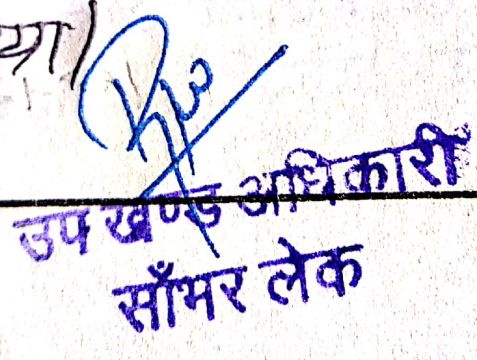 उप खण्ड अधिकारी
साँभर लेक